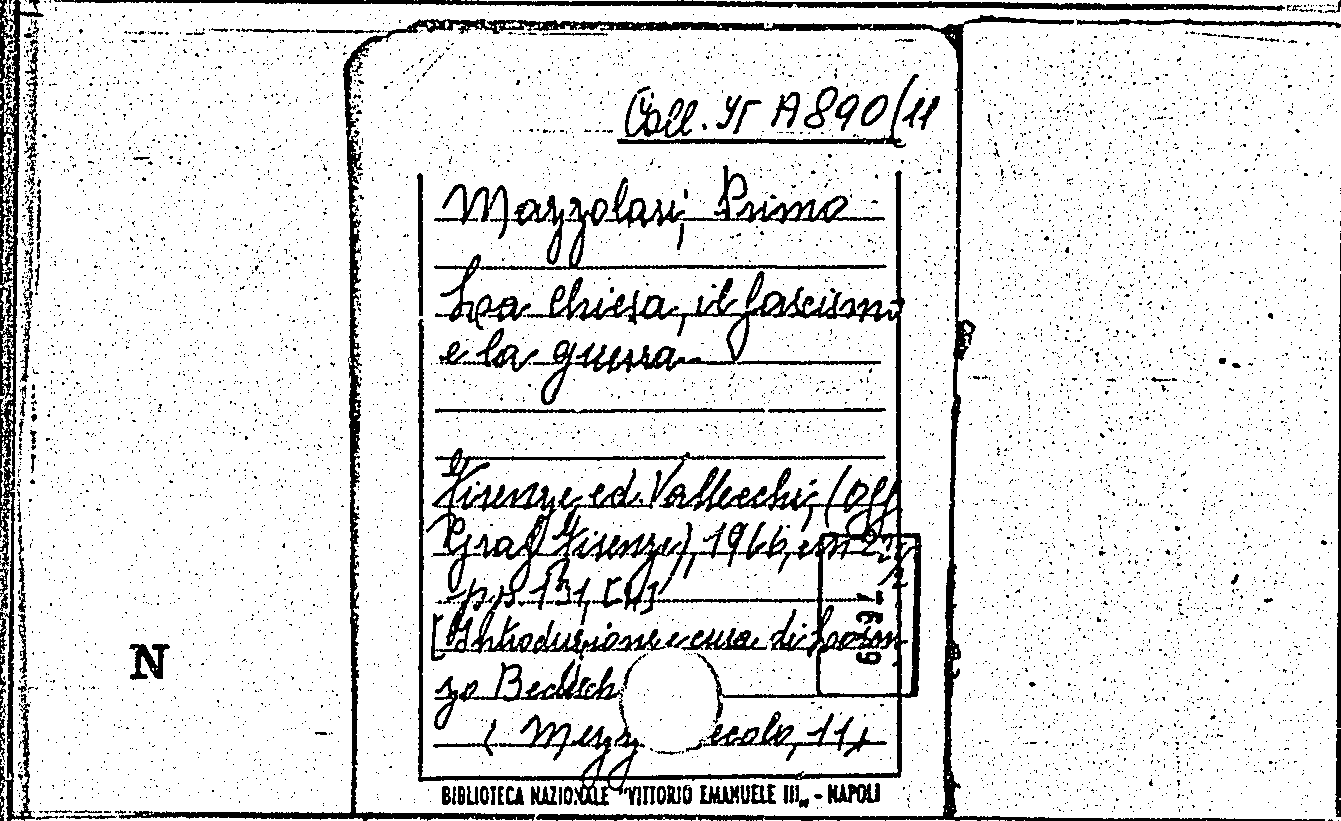 Coll. YΓ A 890/11
Mazzolari, Primo
La Chiesa, il fascismo
e la guerra.
Firenze, ed. Vallecchi, (Off.
Graf. Firenze), 1966, cm
pp 131, [4]
[Introduzione e cura di Loren-
zo Bedesch
( Mezz ecolo, 11)
N
BIBLIOTECA NAZIONALE "VITTORIO EMANUELE III„ - NAPOLI